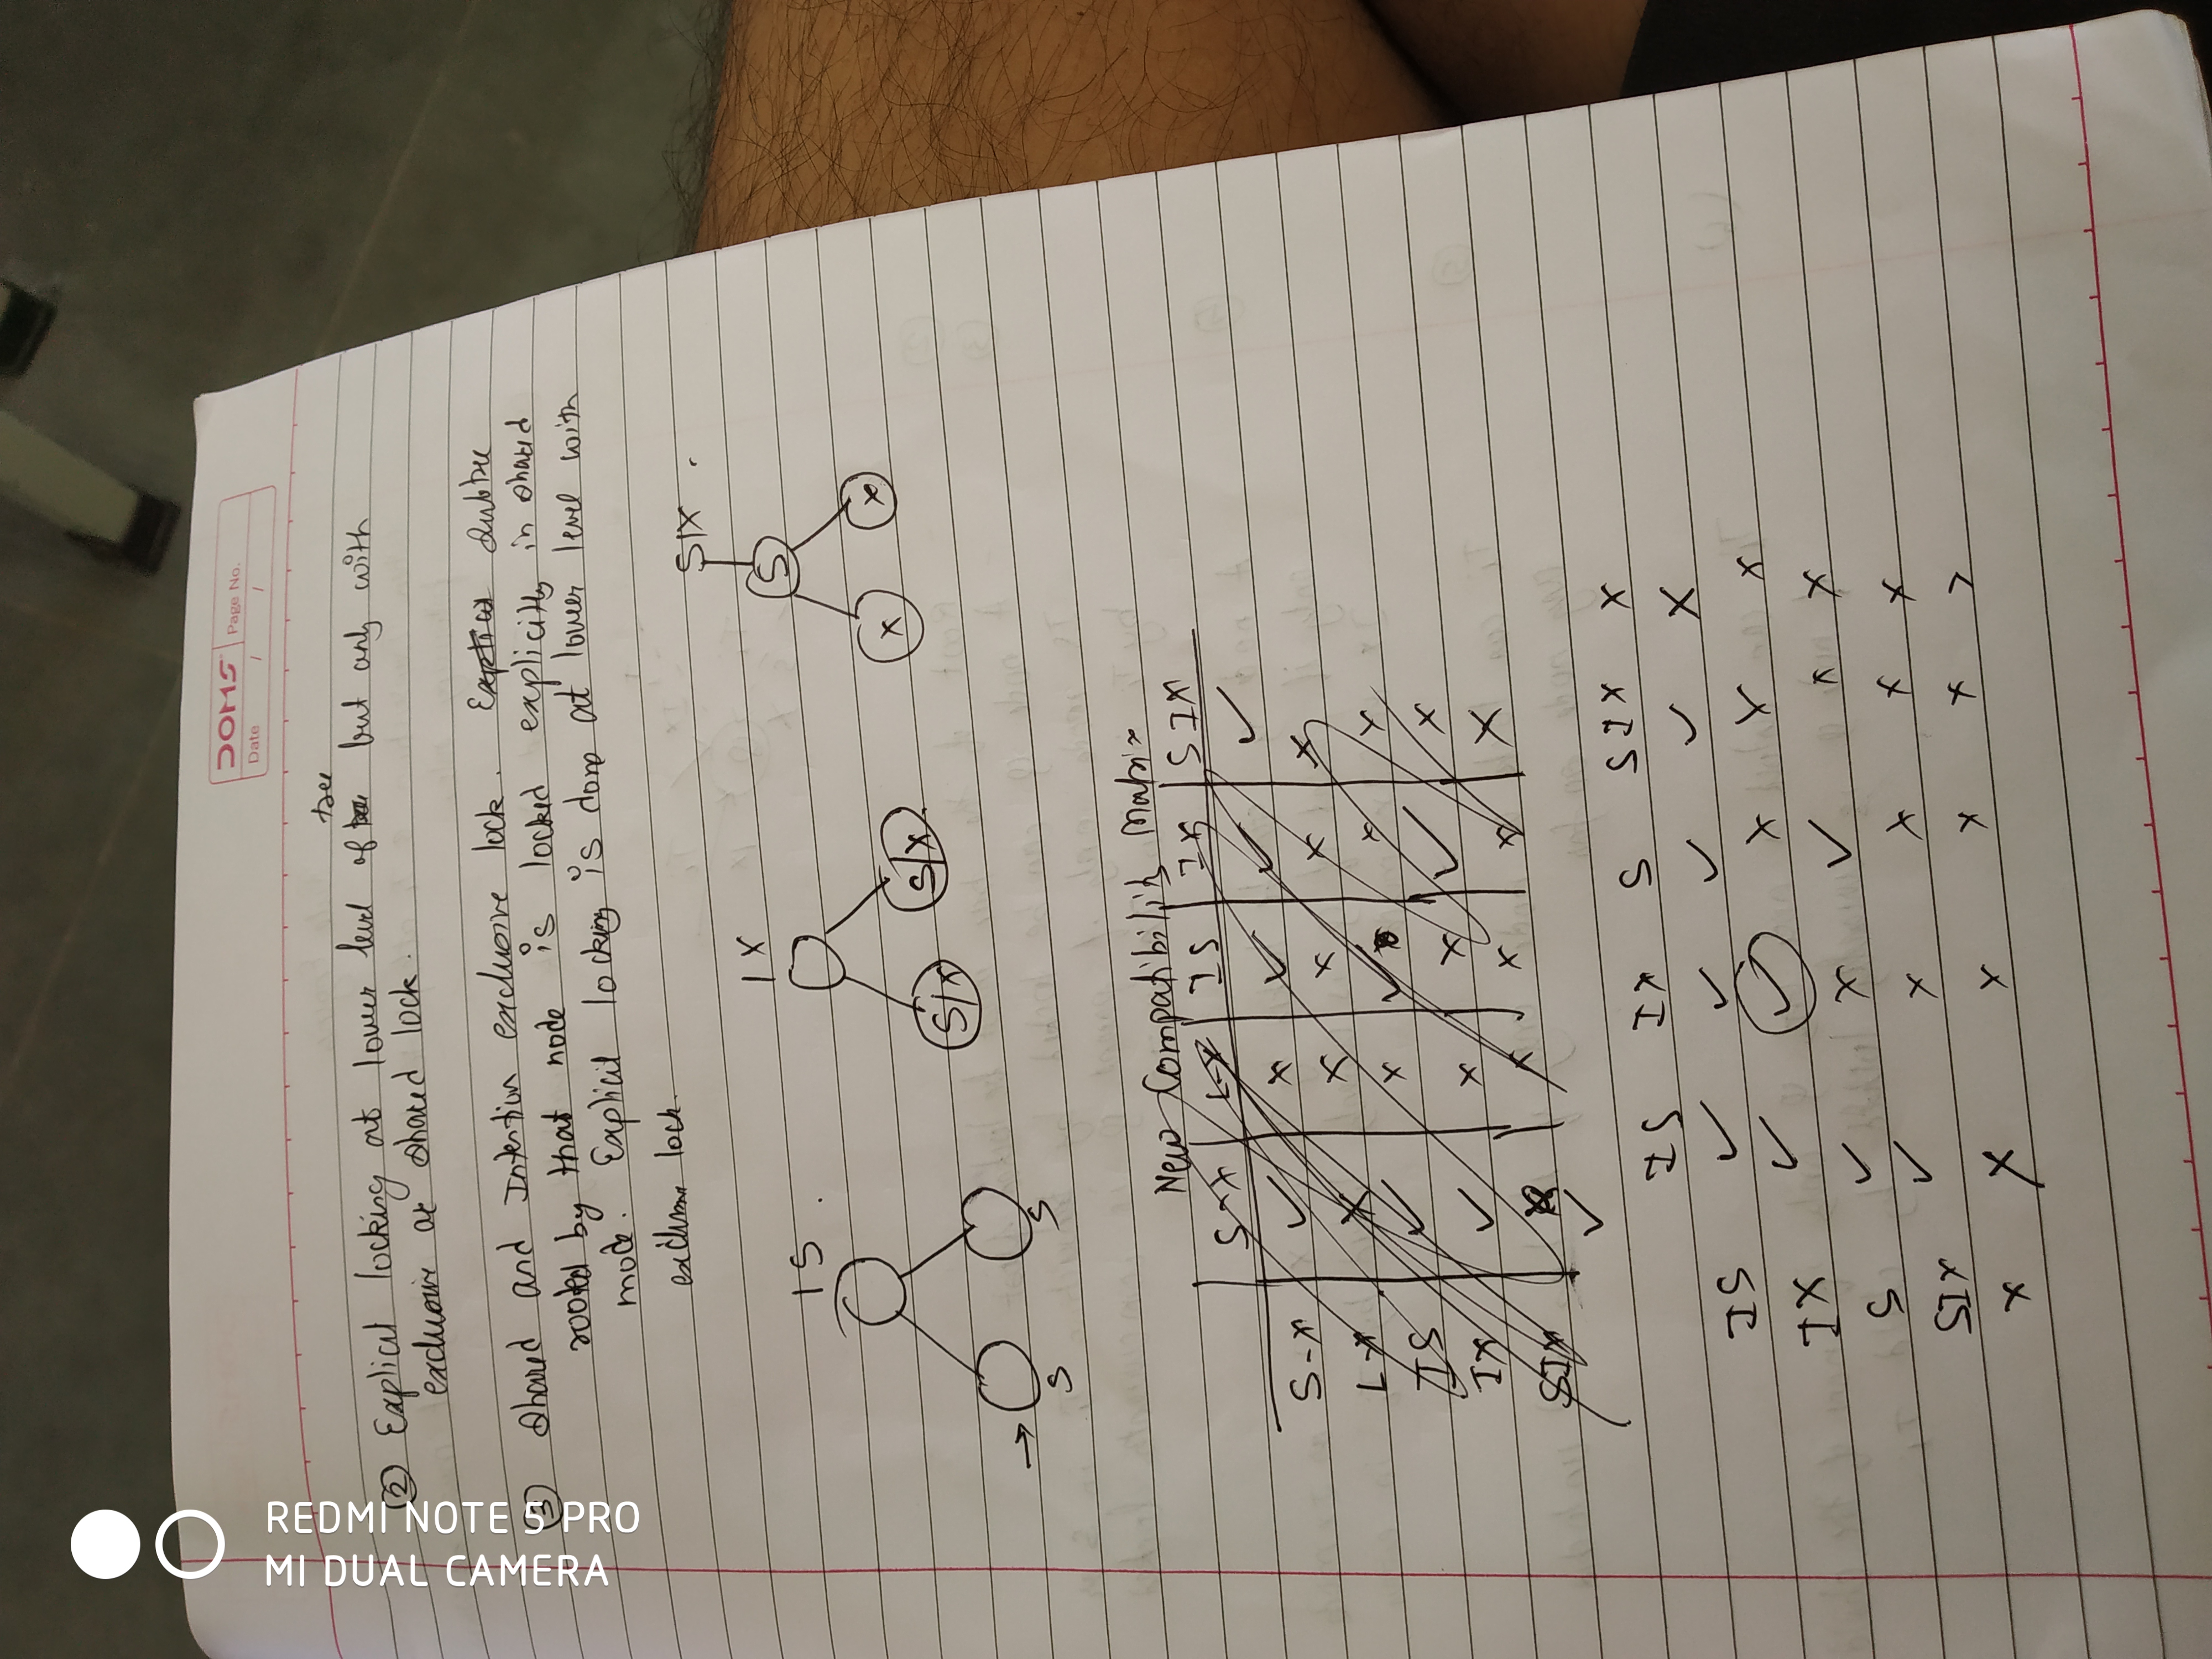 DOMS
Page No.
Date / /
② Explicit locking at lower level of tree but only with
exclusive or shared lock.
③ Shared and Intention exclusive lock. subtree
rooted by that node is locked explicitly in shared
mode. Explicit locking is done at lower level with
exclusive lock.
IS IX SIX
S
S/X S/X X X
→ S S
New Compatibility Matrix
S-X L-X IS IX SIX
S-X ✓ x ✓ ✓ ✓
L-X x x x x x
IS ✓ x ✓ x x
IX ✓ x x ✓ x
SIX ✓ x x x x
IS IX S SIX X
IS ✓ ✓ ✓ ✓ X
IX ✓ ✓ x x x
S ✓ x ✓ x x
SIX ✓ x x x x
X X x x x
REDMI NOTE 5 PRO
MI DUAL CAMERA